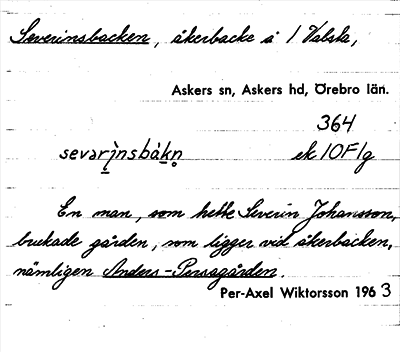 Severinsbacken, åkerbacke å 1 Valsta,
Askers sn, Askers hd, Örebro län.
364
sevərìnsbákn̥ ek 10F1g
En man, som hette Severin Johansson,
brukade gården, som ligger vid åkerbacken,
nämligen Anders-Persagården.
Per-Axel Wiktorsson 1963